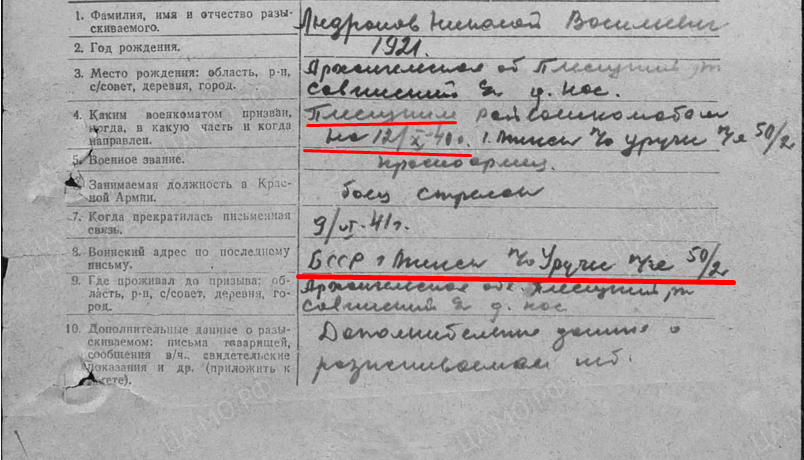 1. Фамилия, имя и отчество разы-
скиваемого.
Андронов Николай Васильевич
2. Год рождения.
1921.
3. Место рождения: область, р-н,
с/совет, деревня, город.
Архангельская об Плесецкий рн
Савинский д. нос.
4. Каким военкоматом призван,
когда, в какую часть и когда
направлен.
Плесецким райвоенкоматом
12/X-40г. г. Минск п/о Уручи п/я 50/2
5. Военное звание.
красноармец.
6. Занимаемая должность в Крас-
ной Армии.
боец стрелок
7. Когда прекратилась письменная
связь.
9/VI-41г.
8. Воинский адрес по последнему
письму.
БССР г Минск п/о Уручи п/я 50/2
9. Где проживал до призыва: об-
ласть, р-н, с/совет, деревня, го-
род.
Архангельская об Плесецкий рн
Савинский д. нос
10. Дополнительные данные о разы-
скиваемом: письма товарищей,
сообщения в/ч., свидетельские
показания и др. (приложить к
анкете).
Дополнительные данные о
разыскиваемом нет.
ЦАМО.РФ
ЦАМО.РФ